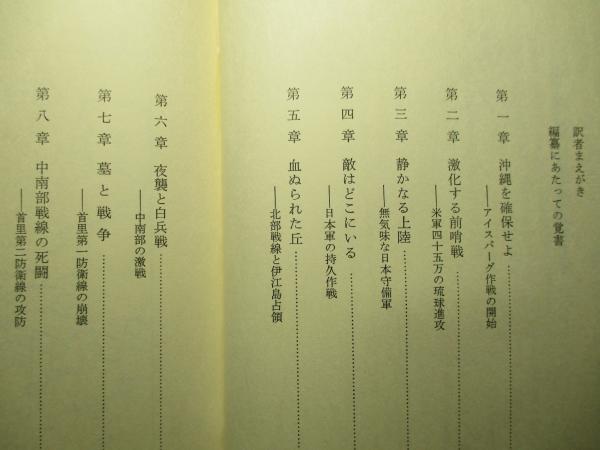 訳者まえがき
編纂にあたっての覚書
第一章 沖縄を確保せよ
――アイスバーグ作戦の開始
第二章 激化する前哨戦
――米軍四十五万の琉球進攻
第三章 静かなる上陸
――無気味な日本守備軍
第四章 敵はどこにいる
――日本軍の持久作戦
第五章 血ぬられた丘
――北部戦線と伊江島占領
第六章 夜襲と白兵戦
――中南部の激戦
第七章 墓と戦争
――首里第一防衛線の崩壊
第八章 中南部戦線の死闘
――首里第二防衛線の攻防